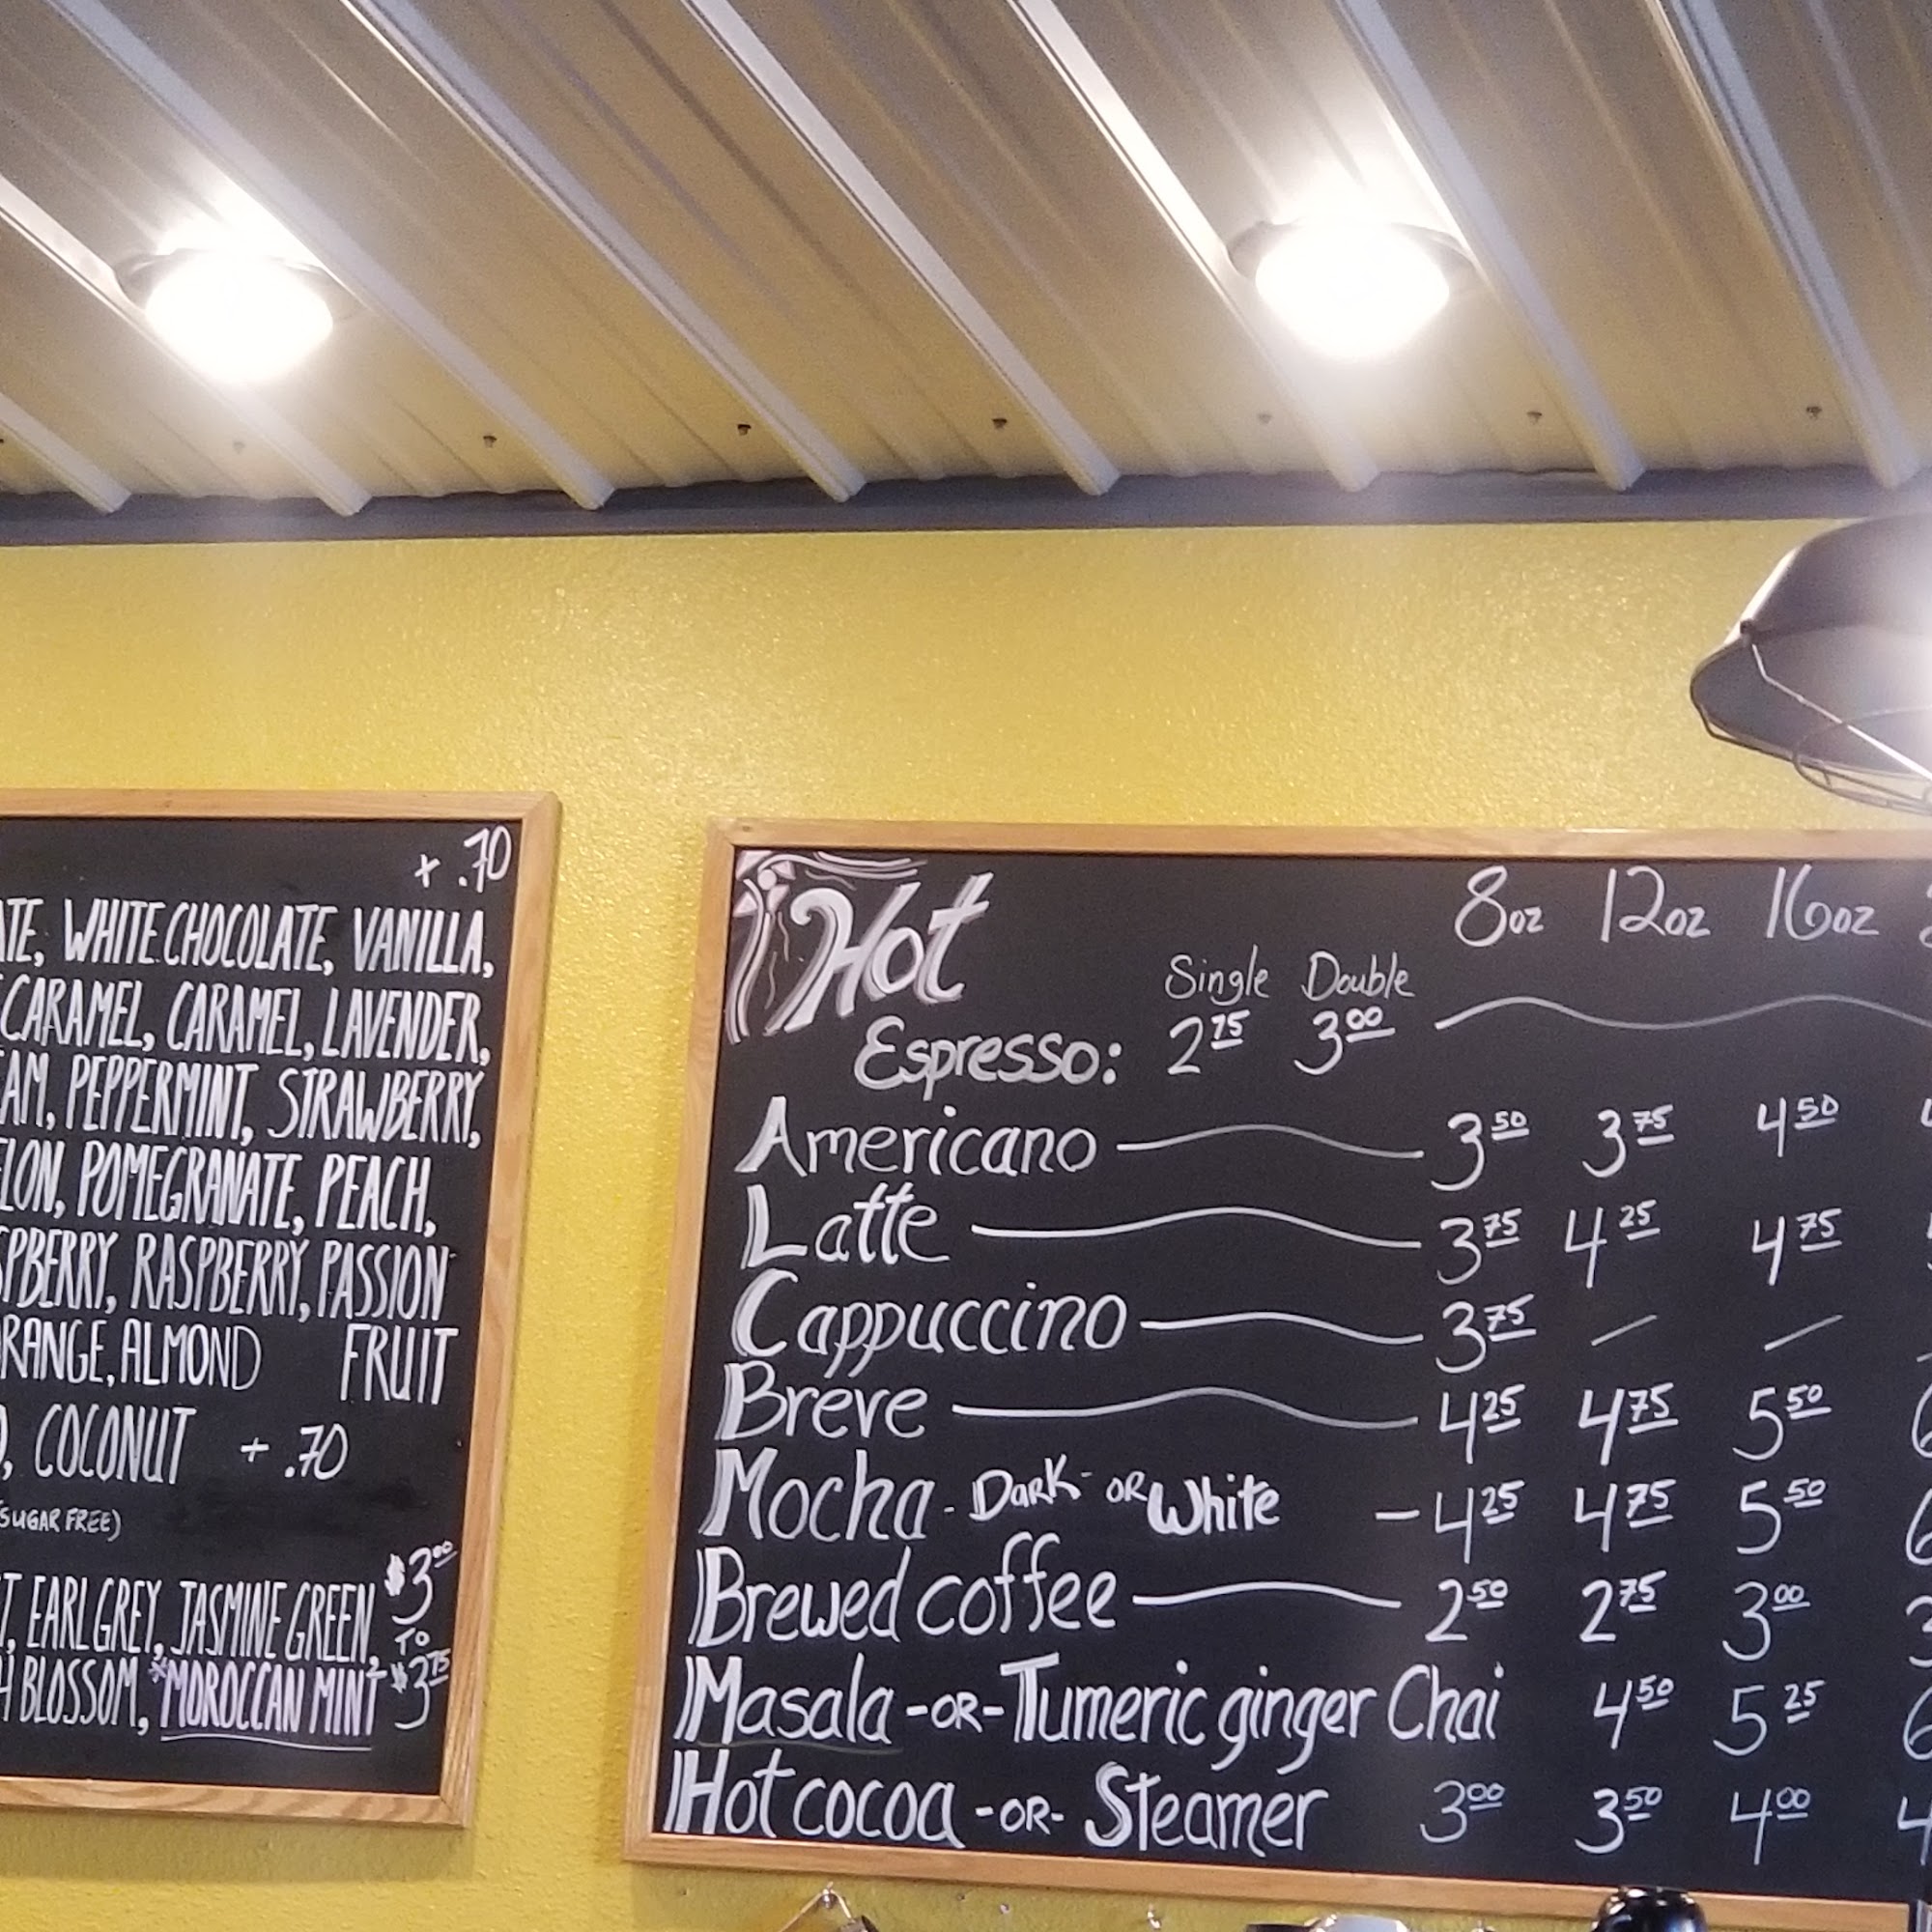 + .70
WHITE CHOCOLATE, VANILLA,
CARAMEL, CARAMEL, LAVENDER,
PEPPERMINT, STRAWBERRY,
POMEGRANATE, PEACH,
RASPBERRY, PASSION
ALMOND FRUIT
COCONUT + .70
(SUGAR FREE)
$3.00
EARL GREY, JASMINE GREEN, TO
BLOSSOM, *MOROCCAN MINT $3.75
Hot 8oz 12oz 16oz
Single Double
Espresso: 2.75 3.00
Americano 3.50 3.75 4.50
Latte 3.75 4.25 4.75
Cappuccino 3.75 - -
Breve 4.25 4.75 5.50
Mocha - Dark - OR White - 4.25 4.75 5.50
Brewed coffee 2.50 2.75 3.00
Masala -OR- Tumeric ginger Chai 4.50 5.25
Hot cocoa -OR- Steamer 3.00 3.50 4.00